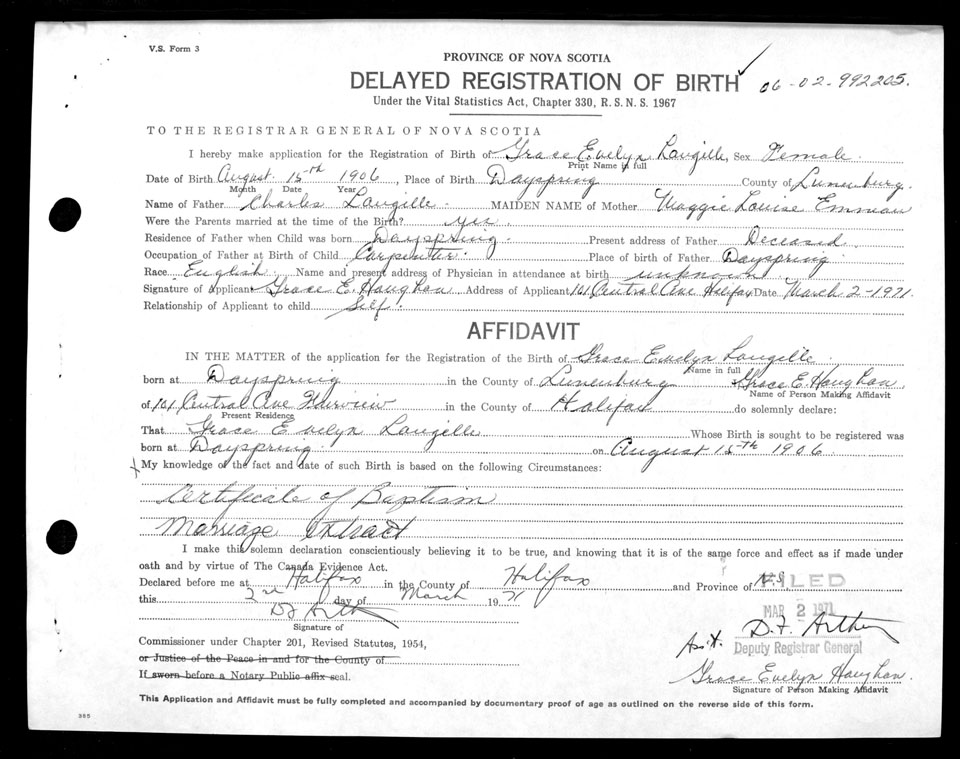 V.S. Form 3
PROVINCE OF NOVA SCOTIA
DELAYED REGISTRATION OF BIRTH ✓ 06-02-992205.
Under the Vital Statistics Act, Chapter 330, R.S.N.S. 1967
TO THE REGISTRAR GENERAL OF NOVA SCOTIA
I hereby make application for the Registration of Birth of Grace Evelyn Langille, Sex Female.
Print Name in full
Date of Birth August 15th 1906, Place of Birth Dayspring County of Lunenburg.
Month Date Year
Name of Father Charles Langille. MAIDEN NAME of Mother Maggie Louise Emmau
Were the Parents married at the time of the Birth? yes.
Residence of Father when Child was born Dayspring. Present address of Father Deceased.
Occupation of Father at Birth of Child Carpenter. Place of birth of Father Dayspring.
Race English. Name and present address of Physician in attendance at birth unknown.
Signature of Applicant Grace E. Haughan Address of Applicant 101 Central Ave Halifax Date March 2-1971.
Relationship of Applicant to child Self.
AFFIDAVIT
IN THE MATTER of the application for the Registration of the Birth of Grace Evelyn Langille.
Name in full
born at Dayspring in the County of Lunenburg Grace E. Haughan.
Name of Person Making Affidavit
of 101 Central Ave Fairview in the County of Halifax do solemnly declare:
Present Residence
That Grace Evelyn Langille Whose Birth is sought to be registered was
born at Dayspring on August 15th 1906.
x My knowledge of the fact and date of such Birth is based on the following Circumstances:
Certificate of Baptism
Marriage Extract
I make this solemn declaration conscientiously believing it to be true, and knowing that it is of the same force and effect as if made under
oath and by virtue of The Canada Evidence Act.
Declared before me at Halifax in the County of Halifax and Province of N.S. FILED
this 2nd day of March 1971 MAR 2 1971
D F Arthur
Signature of
Asst. D.F. Arthur
Commissioner under Chapter 201, Revised Statutes, 1954,
Deputy Registrar General
or Justice of the Peace in and for the County of
If sworn before a Notary Public affix seal.
Grace Evelyn Haughan.
Signature of Person Making Affidavit
This Application and Affidavit must be fully completed and accompanied by documentary proof of age as outlined on the reverse side of this form.
385